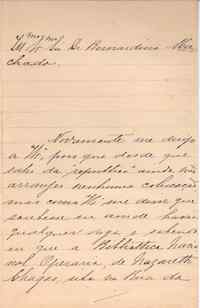 Sr. Dr. Bernardino Ma-
chado.
Novamente me dirijo
a V. porque desde que
sahi da republica ainda não
arranjei nenhuma collocação
mas como V. me disse que
soubesse eu aonde havia
qualquer vaga e sabendo
eu que a Bibliotheca Nacio
nal, Operaria, de Nazareth
Chagas, na Rua da